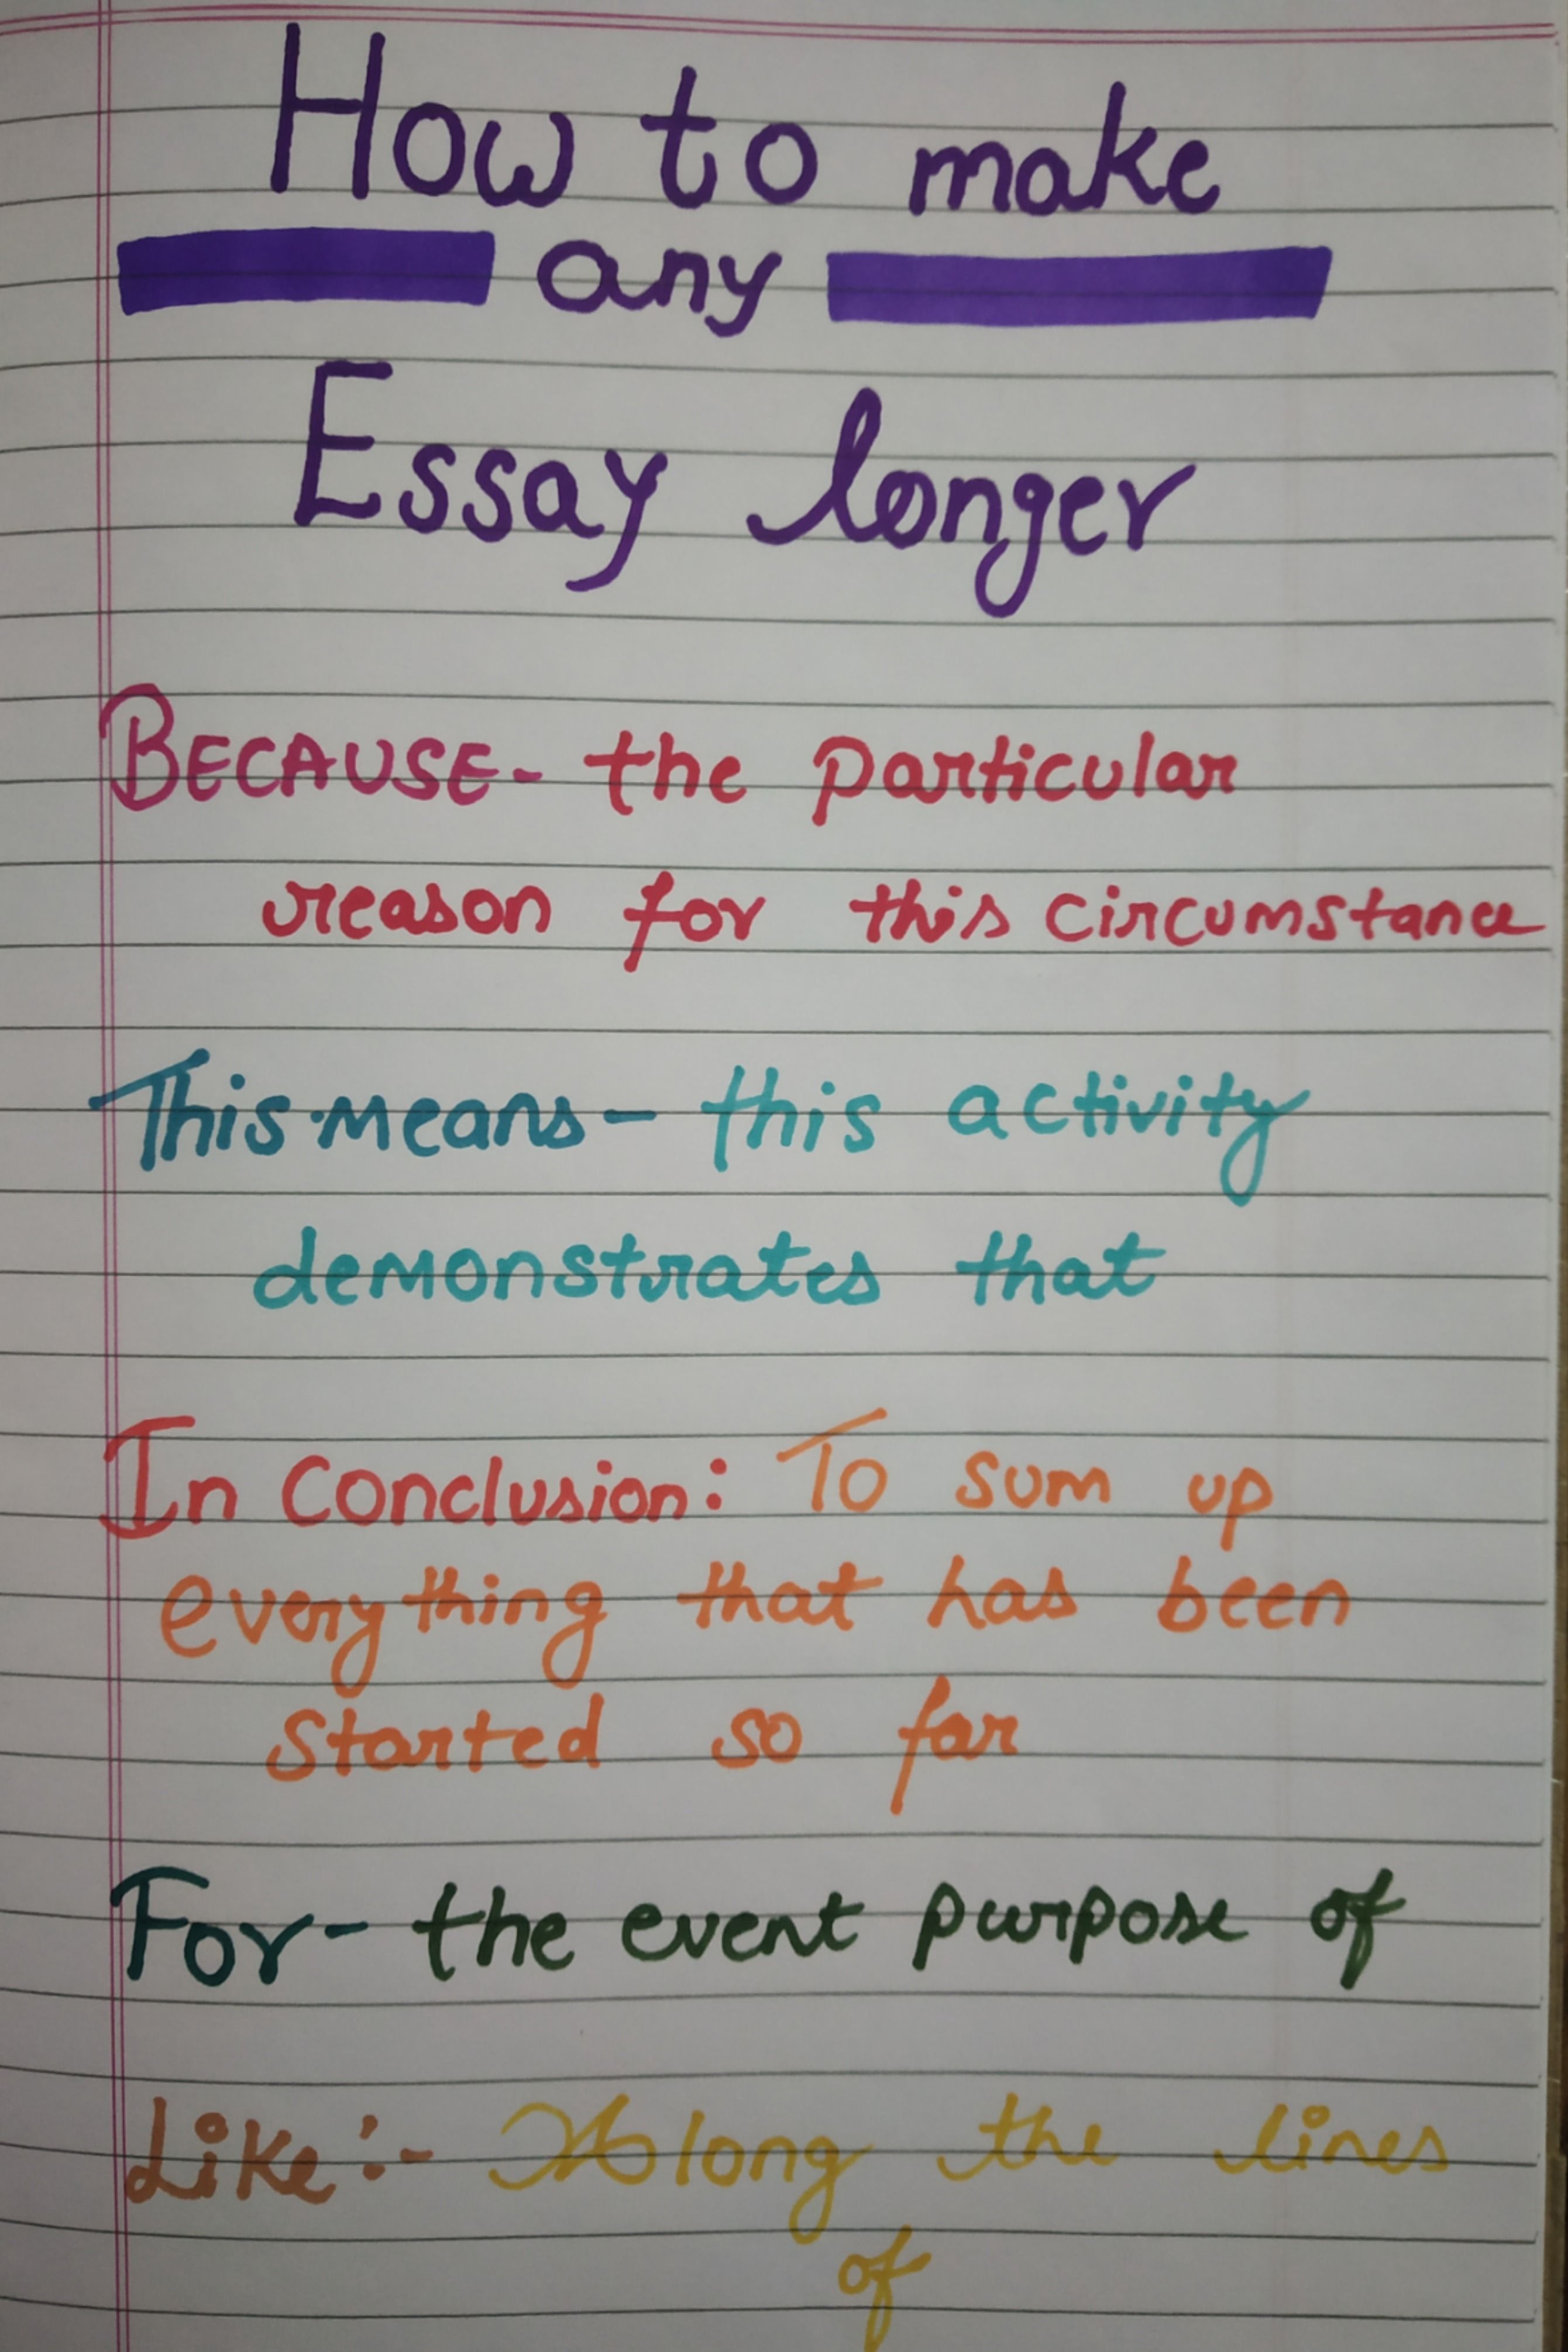 How to make
any
Essay longer
BECAUSE- the particular
reason for this circumstance
This means- this activity
demonstrates that
In Conclusion: To sum up
everything that has been
started so far
For- the event purpose of
Like:- Along the lines
of